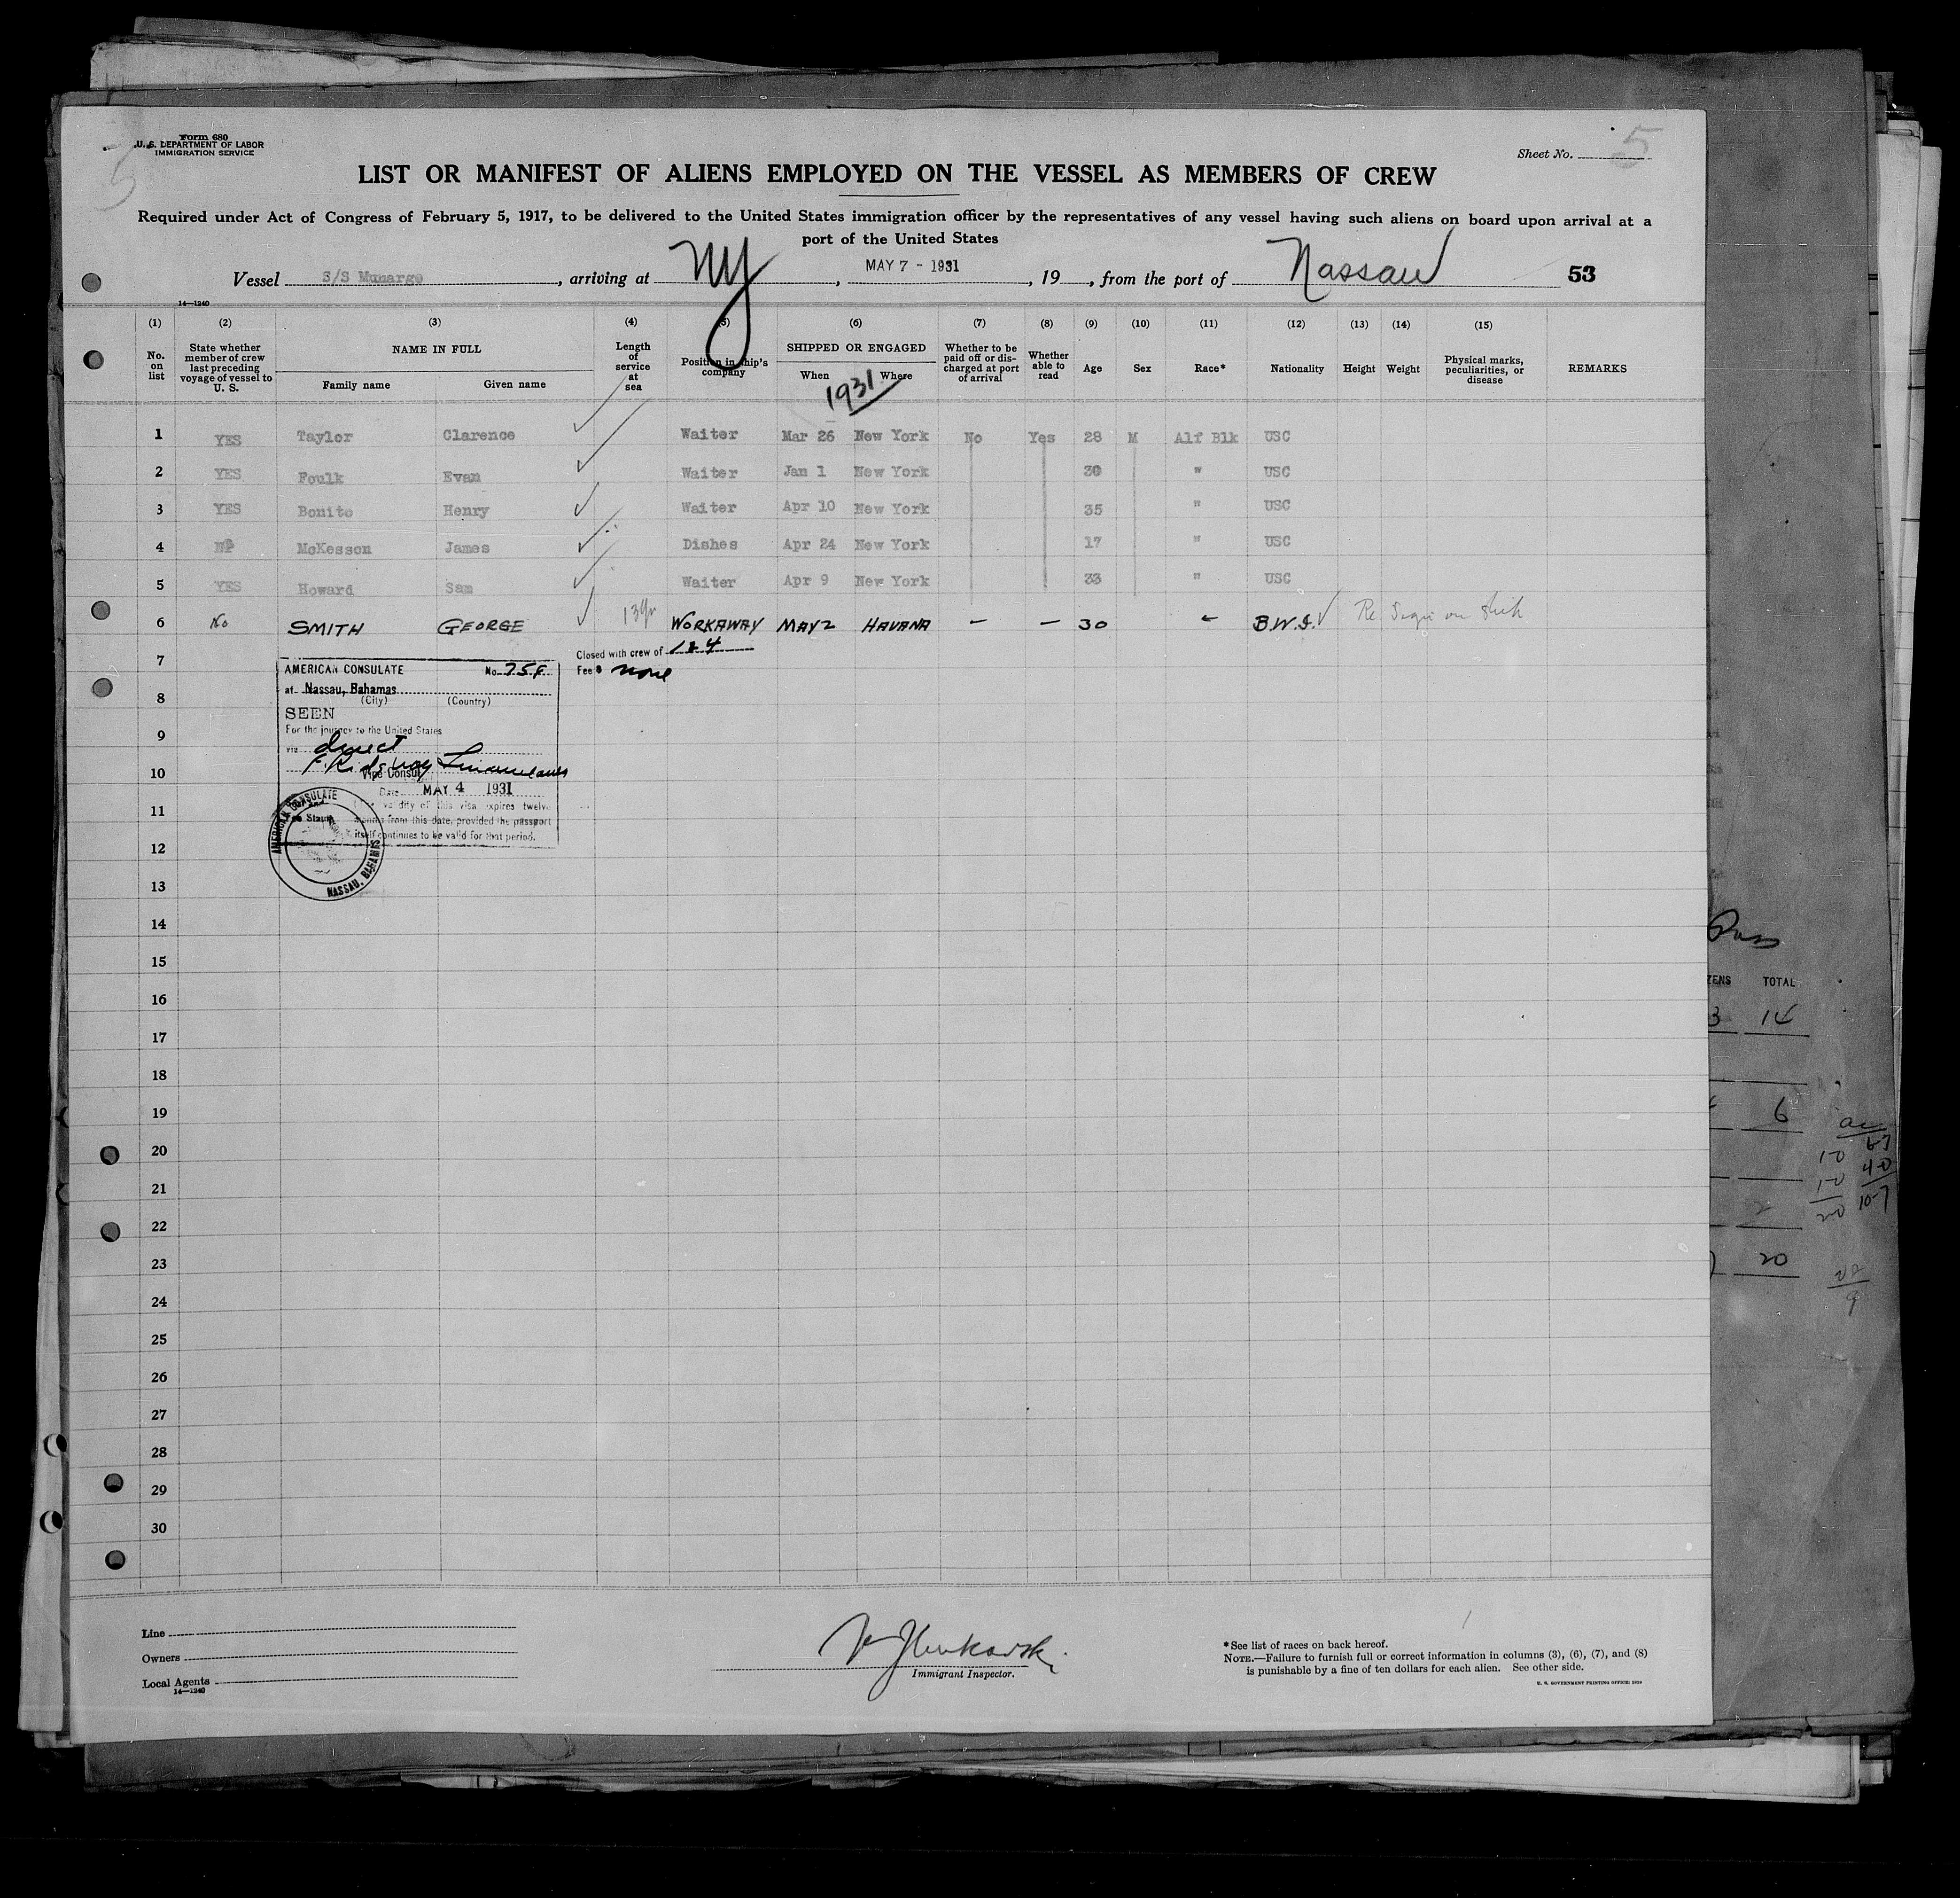 Form 680
U. S. DEPARTMENT OF LABOR
IMMIGRATION SERVICE
5
Sheet No. 5
LIST OR MANIFEST OF ALIENS EMPLOYED ON THE VESSEL AS MEMBERS OF CREW
Required under Act of Congress of February 5, 1917, to be delivered to the United States immigration officer by the representatives of any vessel having such aliens on board upon arrival at a
port of the United States
Vessel S/S Munargo, arriving at NY, MAY 7 - 1931, 19, from the port of Nassau 53
14—1240
(1) (2) (3) (4) (5) (6) (7) (8) (9) (10) (11) (12) (13) (14) (15)
No. on list
State whether member of crew last preceding voyage of vessel to U. S.
NAME IN FULL
Family name Given name
Length of service at sea
Position in ship's company
SHIPPED OR ENGAGED
When Where
1931
Whether to be paid off or discharged at port of arrival
Whether able to read
Age Sex Race* Nationality Height Weight
Physical marks, peculiarities, or disease
REMARKS
1 YES Taylor Clarence Waiter Mar 26 New York No Yes 28 M Alf Blk USC
2 YES Foulk Evan Waiter Jan 1 New York 30 " USC
3 YES Bonito Henry Waiter Apr 10 New York 35 " USC
4 McKesson James Dishes Apr 24 New York 17 " USC
5 YES Howard Sam Waiter Apr 9 New York 33 " USC
6 No SMITH GEORGE 13 yr WORKAWAY MAY 2 HAVANA — — 30 B.W.I.
Closed with crew of 124
Fee $ none
7
8
9
10
11
12
13
14
15
16
17
18
19
20
21
22
23
24
25
26
27
28
29
30
AMERICAN CONSULATE No. 758
at Nassau, Bahamas
(City) (Country)
SEEN
For the journey to the United States
via direct
F. Ridgway
Vice Consul
Date MAY 4 1931
validity of this visa expires twelve
months from this date, provided the passport
itself continues to be valid for that period.
Fee Stamp
AMERICAN CONSULATE
NASSAU, BAHAMAS
Pass
ZENS TOTAL
3 14
6
2
20
10 67
10 40
20 107
Line
Owners
Local Agents
14—1240
Immigrant Inspector.
*See list of races on back hereof.
NOTE.—Failure to furnish full or correct information in columns (3), (6), (7), and (8)
is punishable by a fine of ten dollars for each alien. See other side.